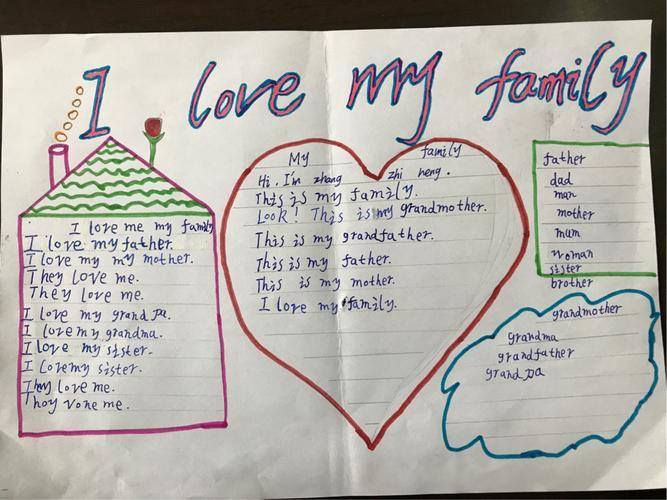 I love my family
I love me my family
I love my father.
I love my my mother.
They love me.
They love me.
I love my grand pa.
I love my grandma.
I love my sister.
I love my sister.
They love me.
They vone me.
My family
Hi, I'm zhang zhi neng.
This is my family.
Look! This is my grandmother.
This is my grandfather.
This is my father.
This is my mother.
I love my family.
father
dad
man
mother
mum
woman
sister
brother
grandmother
grandma
grandfather
grand pa